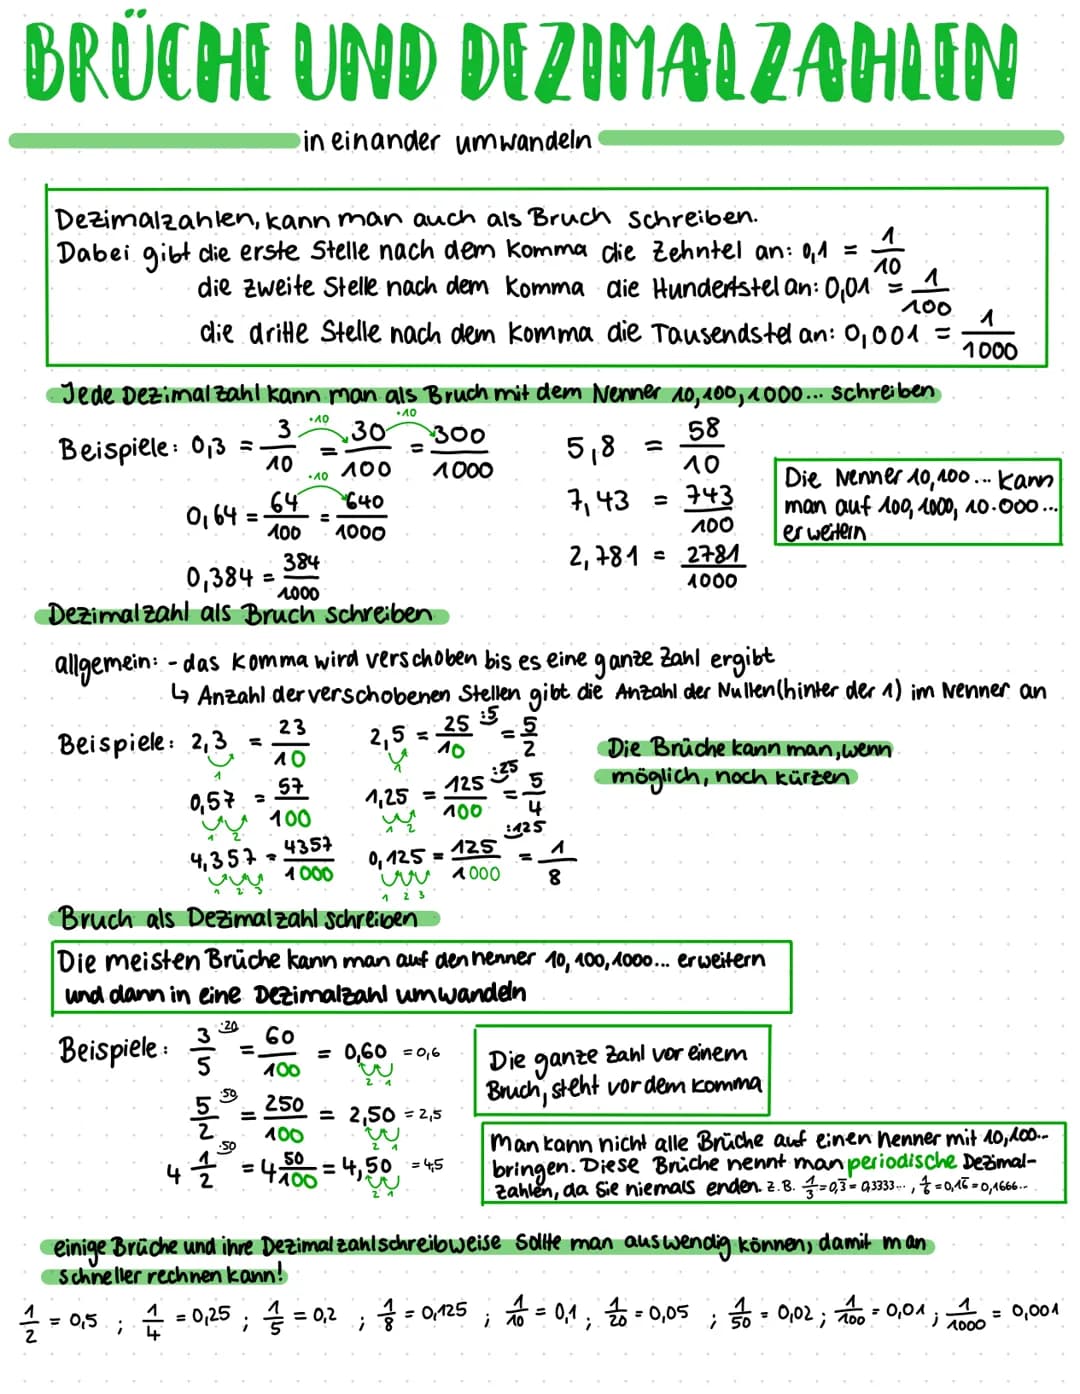 BRÜCHE UND DEZIMALZAHLEN
in einander umwandeln
Dezimalzahlen, kann man auch als Bruch schreiben.
Dabei gibt die erste Stelle nach dem Komma die Zehntel an: 0,1 = 1/10
die zweite Stelle nach dem Komma die Hundertstel an: 0,01 = 1/100
die dritte Stelle nach dem Komma die Tausendstel an: 0,001 = 1/1000
Jede Dezimalzahl kann man als Bruch mit dem Nenner 10,100,1000... schreiben
Beispiele: 0,3 = 3/10 ·10 = 30/100 ·10 = 300/1000
0,64 = 64/100 ·10 = 640/1000
0,384 = 384/1000
5,8 = 58/10
7,43 = 743/100
2,781 = 2781/1000
Die Nenner 10,100... kann
man auf 100, 1000, 10.000...
erweitern
Dezimalzahl als Bruch schreiben
allgemein: - das Komma wird verschoben bis es eine ganze Zahl ergibt
↳ Anzahl der verschobenen Stellen gibt die Anzahl der Nullen (hinter der 1) im Nenner an
Beispiele: 2,3 = 23/10
1
0,57 = 57/100
1 2
4,357 = 4357/1000
1 2 3
2,5 = 25/10 :5 = 5/2
1
1,25 = 125/100 :25 = 5/4
1 2
0,125 = 125/1000 :125 = 1/8
1 2 3
Die Brüche kann man, wenn
möglich, noch kürzen
Bruch als Dezimalzahl schreiben
Die meisten Brüche kann man auf den nenner 10, 100, 1000... erweitern
und dann in eine Dezimalzahl umwandeln
Beispiele: 3/5 ·20 = 60/100 = 0,60 = 0,6
2 1
5/2 ·50 = 250/100 = 2,50 = 2,5
2 1
4 1/2 ·50 = 4 50/100 = 4,50 = 4,5
2 1
Die ganze Zahl vor einem
Bruch, steht vor dem Komma
Man kann nicht alle Brüche auf einen nenner mit 10,100...
bringen. Diese Brüche nennt man periodische Dezimal-
zahlen, da sie niemals enden. z.B. 1/3 = 0,3̅ = 0,3333..., 1/6 = 0,16̅ = 0,1666...
einige Brüche und ihre Dezimalzahlschreibweise sollte man auswendig können, damit man
schneller rechnen kann!
1/2 = 0,5 ; 1/4 = 0,25 ; 1/5 = 0,2 ; 1/8 = 0,125 ; 1/10 = 0,1 ; 1/20 = 0,05 ; 1/50 = 0,02 ; 1/100 = 0,01 ; 1/1000 = 0,001